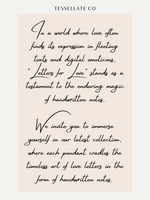 TESSELLATE CO
In a world where love often
finds its expression in fleeting
texts and digital emoticons,
"Letters for Love" stands as a
testament to the enduring magic
of handwritten notes.
We invite you to immerse
yourself in our latest collection,
where each pendant cradles the
timeless art of love letters in the
form of handwritten notes.